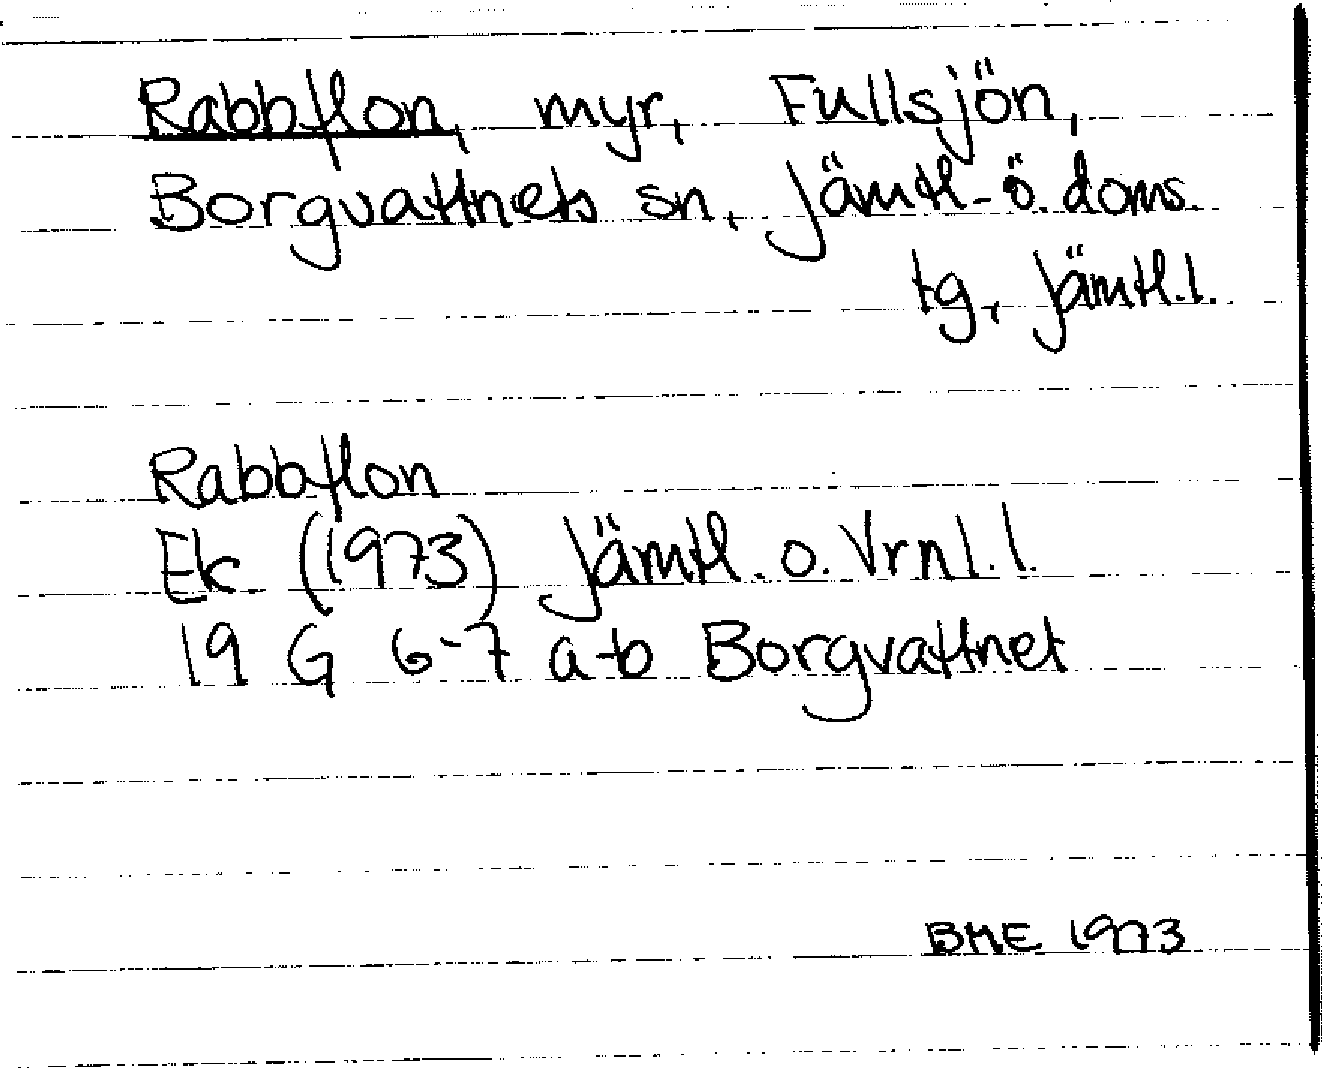 Rabbflon, myr, Fullsjön,
Borgvattnets sn, Jämtl. ö. doms.
tg, Jämtl. l.
Rabbflon
Ek (1973) Jämtl. o. Vrnl. l.
19 G 6-7 a-b Borgvattnet
BME 1973